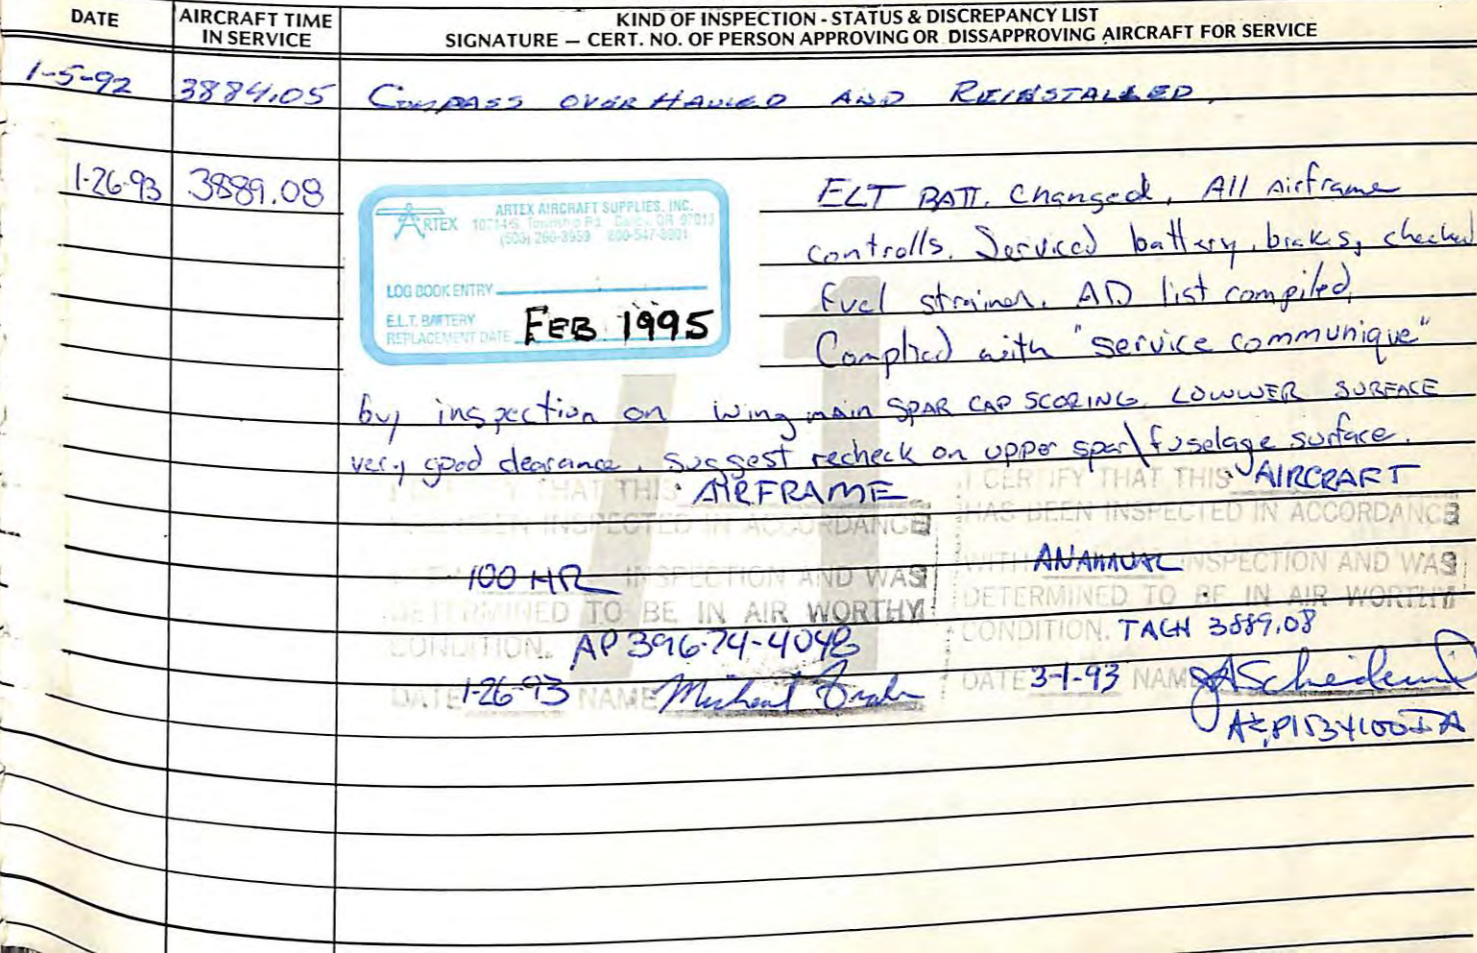 DATE
AIRCRAFT TIME
IN SERVICE
KIND OF INSPECTION - STATUS & DISCREPANCY LIST
SIGNATURE — CERT. NO. OF PERSON APPROVING OR DISSAPPROVING AIRCRAFT FOR SERVICE
1-5-92 3884.05 COMPASS OVERHAULED AND REINSTALLED.
1-26-93 3889.08
ARTEX
ARTEX AIRCRAFT SUPPLIES, INC.
LOG BOOK ENTRY
E.L.T. BATTERY
REPLACEMENT DATE FEB 1995
ELT BATT. Changed, All airframe
controlls. Serviced battery, brakes, checked
fuel strainer. AD list compiled.
Complied with "service communique"
by inspection on wing main SPAR CAP SCORING. LOWWER SURFACE
very good clearance. Suggest recheck on upper spar\fuselage surface.
THAT THIS AIRFRAME
BEEN INSPECTED IN ACCORDANCE
100 HR INSPECTION AND WAS
DETERMINED TO BE IN AIR WORTHY
CONDITION. AP 396-74-4048
DATE 1-26-93 NAME Michael
I CERTIFY THAT THIS AIRCRAFT
HAS BEEN INSPECTED IN ACCORDANCE
WITH ANANNUAL INSPECTION AND WAS
DETERMINED TO BE IN AIR WORTHY
CONDITION. TACH 3889.08
DATE 3-1-93 NAME
A&P1534100IA